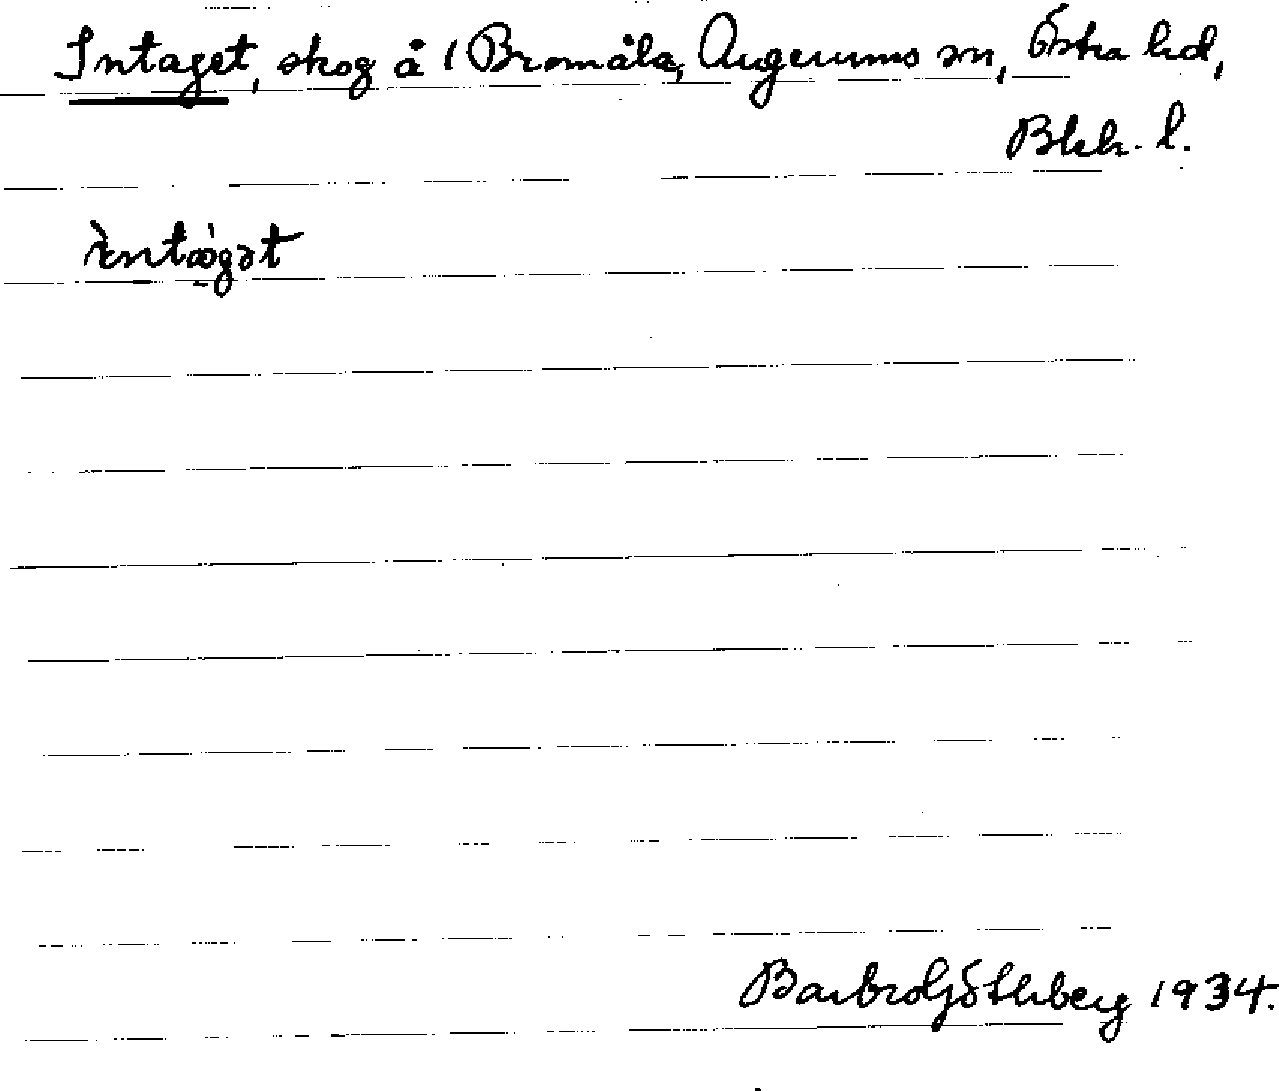 Intaget, skog å 1 Bromåla, Augerums sn, Östra hd,
Blek. l.
ìntá̤gət
Barbro Götliberg 1934.